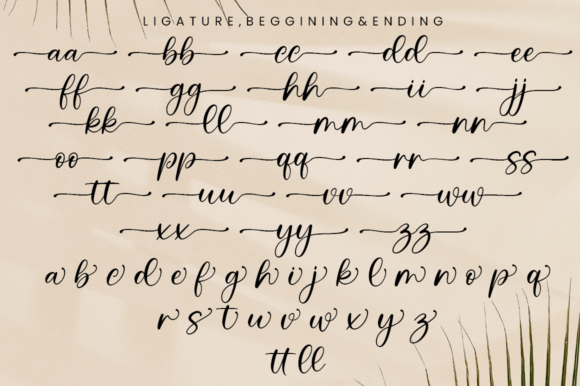 LIGATURE,BEGGINING&ENDING
aa bb cc dd ee
ff gg hh ii jj
kk ll mm nn
oo pp qq rr ss
tt uu vv ww
xx yy zz
a b c d e f g h i j k l m n o p q
r s t u v w x y z
tt ll